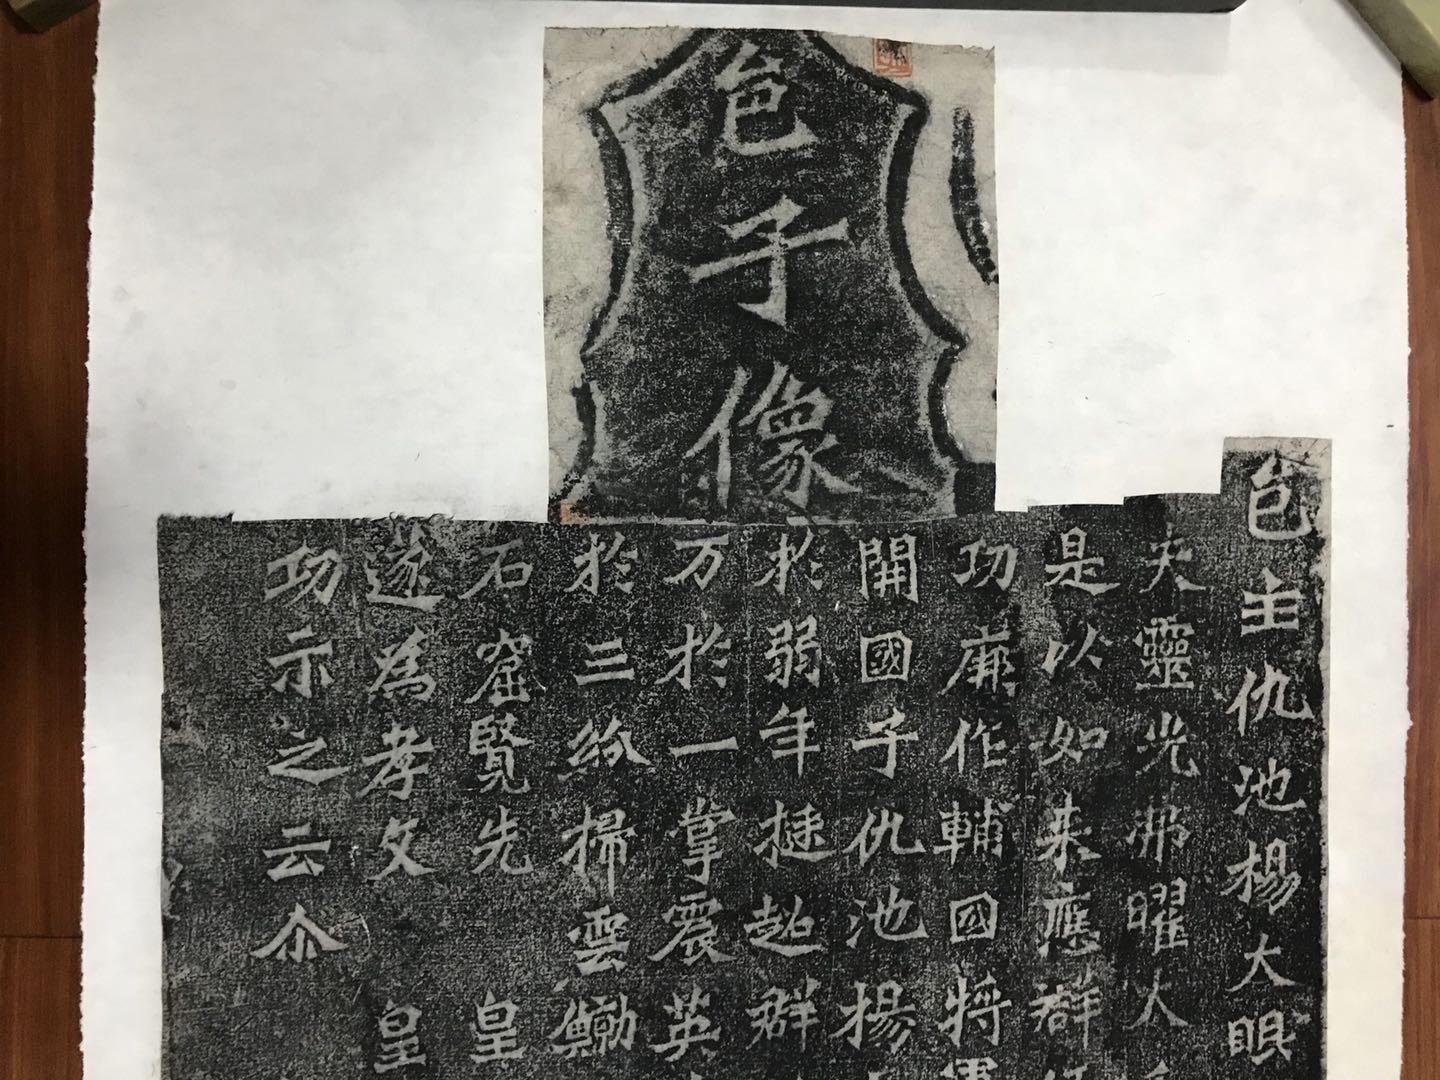 邑子像
邑主仇池楊大眼
夫靈光弗曜大
是以如来應群
功厥作輔國將軍
開國子仇池楊
於弱年挺超群
万於一掌震英
於三紛掃雲鯨
石窟覽先皇
遂為孝文皇
功示之云尔